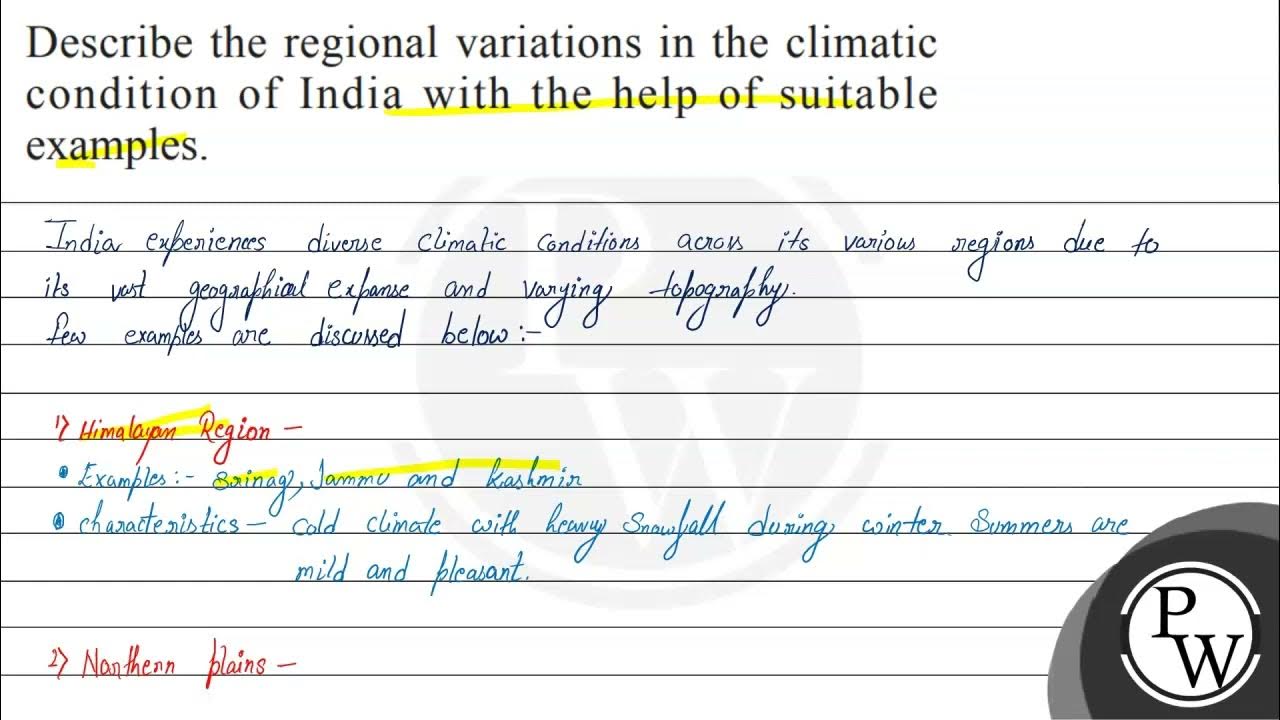 Describe the regional variations in the climatic
condition of India with the help of suitable
examples.
India experiences diverse climatic conditions across its various regions due to
its vast geographical expanse and varying topography.
Few examples are discussed below:-
1) Himalayan Region -
• Examples:- Srinag, Jammu and Kashmir
• Characteristics - Cold climate with heavy snowfall during winter. Summers are
mild and pleasant.
2) Narthern plains -
PW
PW